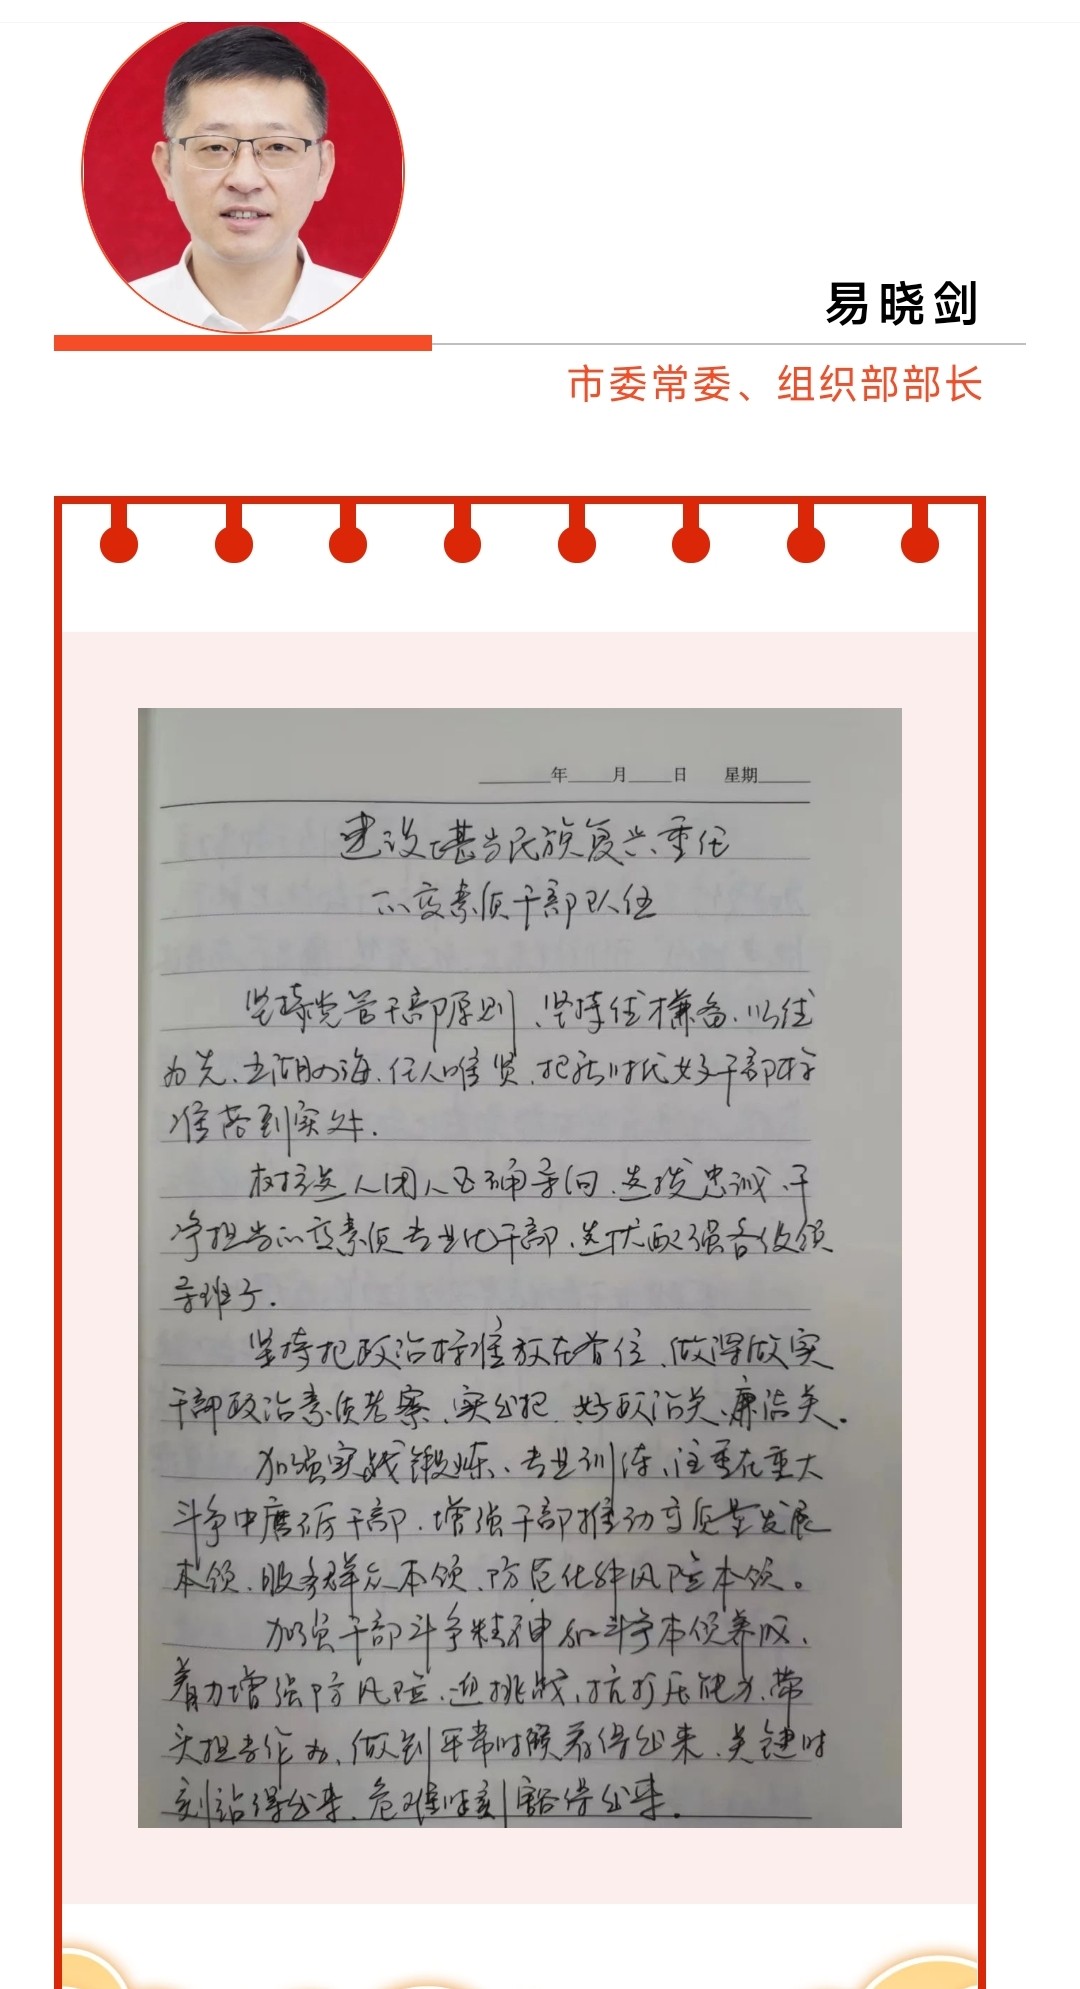 易晓剑
市委常委、组织部部长
年 月 日 星期
建设堪当民族复兴重任
的高素质干部队伍
坚持党管干部原则、坚持德才兼备、以德
为先、五湖四海、任人唯贤、把新时代好干部标
准落到实处.
树立选人用人正确导向、选拔忠诚、干
净担当的高素质专业化干部、选优配强各级领
导班子.
坚持把政治标准放在首位、做深做实
干部政治素质考察、突出把 好政治关、廉洁关.
加强实战锻炼、专业训练、注重在重大
斗争中磨砺干部、增强干部推动高质量发展
本领、服务群众本领、防范化解风险本领。
加强干部斗争精神和斗争本领养成、
着力增强防风险、迎挑战、抗打压能力、带
头担当作为、做到平常时候看得出来、关键时
刻站得出来、危难时刻豁得出来.